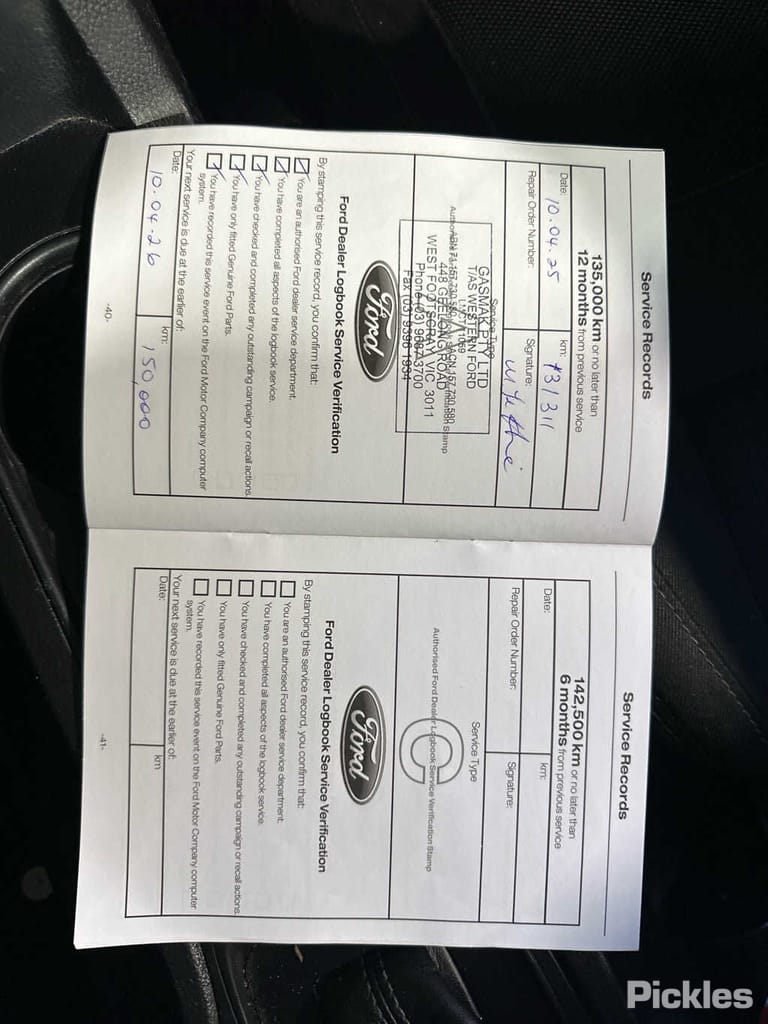 Service Records
135,000 km or no later than
12 months from previous service
Date: 10.04.25
km: 131311
Repair Order Number:
Signature:
Service Type
GASMAK PTY LTD
T/AS WESTERN FORD
448 GEELONG ROAD
WEST FOOTSCRAY VIC 3011
Phone (03) 9687 3700
Fax (03) 9396 1934
Ford
Ford Dealer Logbook Service Verification
By stamping this service record, you confirm that:
You are an authorised Ford dealer service department.
You have completed all aspects of the logbook service.
You have checked and completed any outstanding campaign or recall actions.
You have only fitted Genuine Ford Parts.
You have recorded this service event on the Ford Motor Company computer
system.
Your next service is due at the earlier of:
Date: 10.04.26
km: 150,000
-40-
Service Records
142,500 km or no later than
6 months from previous service
Date:
km:
Repair Order Number:
Signature:
Service Type
C
Authorised Ford Dealer Logbook Service Verification Stamp
Ford
Ford Dealer Logbook Service Verification
By stamping this service record, you confirm that:
You are an authorised Ford dealer service department.
You have completed all aspects of the logbook service.
You have checked and completed any outstanding campaign or recall actions.
You have only fitted Genuine Ford Parts.
You have recorded this service event on the Ford Motor Company computer
system.
Your next service is due at the earlier of:
Date:
km
-41-
Pickles